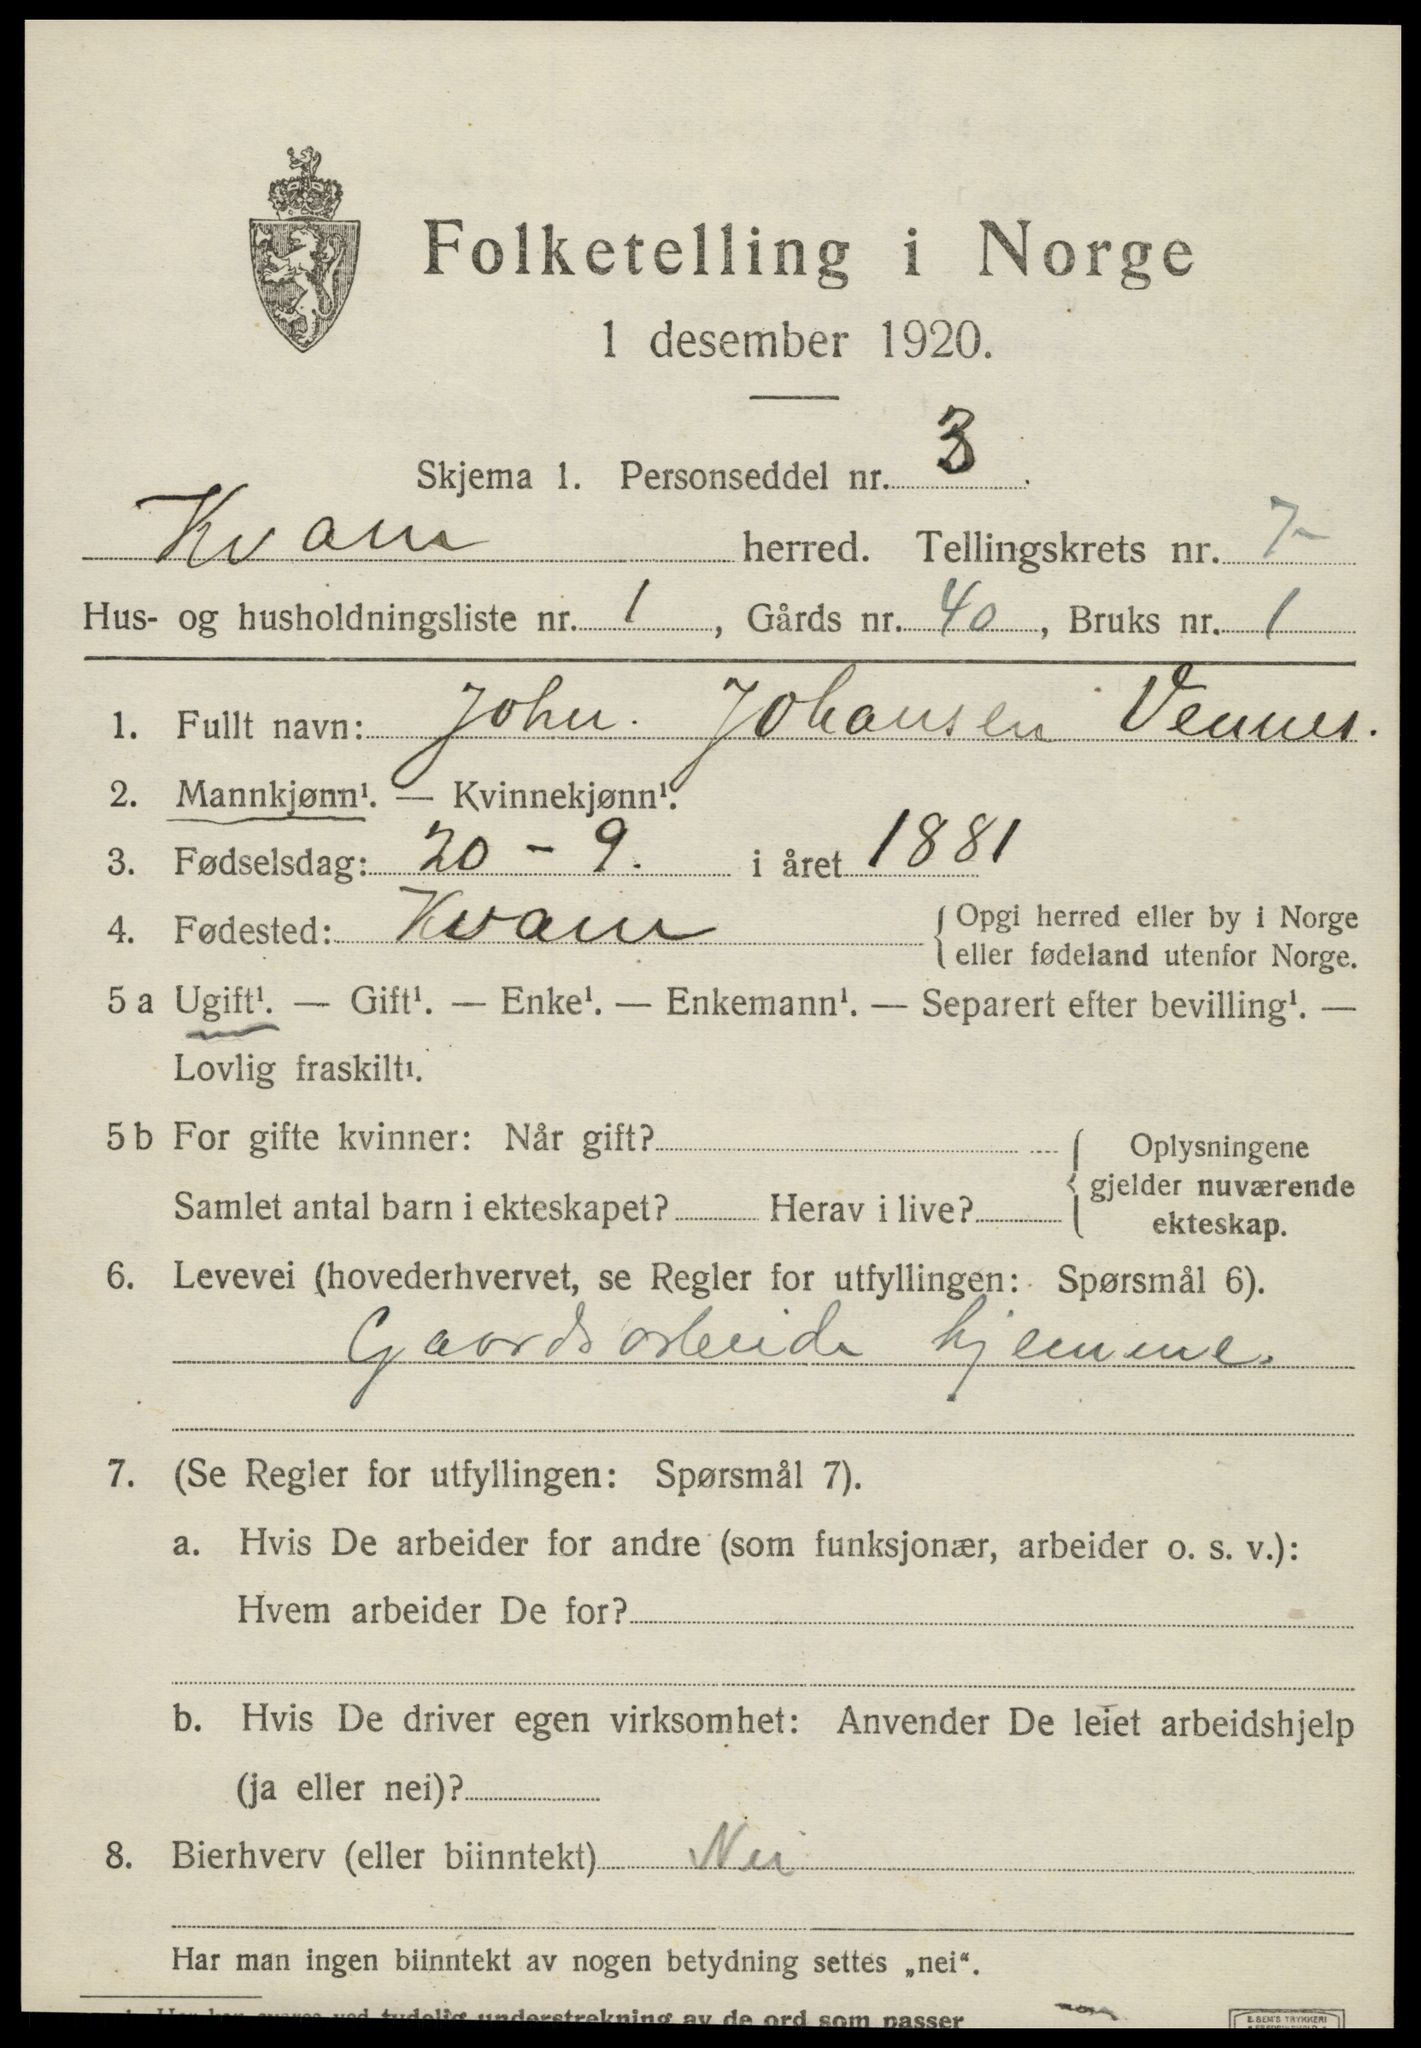 Folketelling i Norge
1 desember 1920.
Skjema 1. Personseddel nr. 3
Kvam herred. Tellingskrets nr. 7
Hus- og husholdningsliste nr. 1, Gårds nr. 40, Bruks nr. 1
1. Fullt navn: John. Johansen Vennes.
2. Mannkjønn¹. — Kvinnekjønn¹.
3. Fødselsdag: 20 - 9. i året 1881
4. Fødested: Kvam { Opgi herred eller by i Norge
eller fødeland utenfor Norge.
5 a Ugift¹. — Gift¹. — Enke¹. — Enkemann¹. — Separert efter bevilling¹. —
Lovlig fraskilt¹.
5 b For gifte kvinner: Når gift? { Oplysningene
gjelder nuværende
Samlet antal barn i ekteskapet? Herav i live?
ekteskap.
6. Levevei (hovederhvervet, se Regler for utfyllingen: Spørsmål 6).
Gaardsarbeide hjemme.
7. (Se Regler for utfyllingen: Spørsmål 7).
a. Hvis De arbeider for andre (som funksjonær, arbeider o. s. v.):
Hvem arbeider De for?
b. Hvis De driver egen virksomhet: Anvender De leiet arbeidshjelp
(ja eller nei)?
8. Bierhverv (eller biinntekt) Nei
Har man ingen biinntekt av nogen betydning settes „nei“.
ved tydelig understrekning av de ord som passer
E. SEM'S TRYKKERI